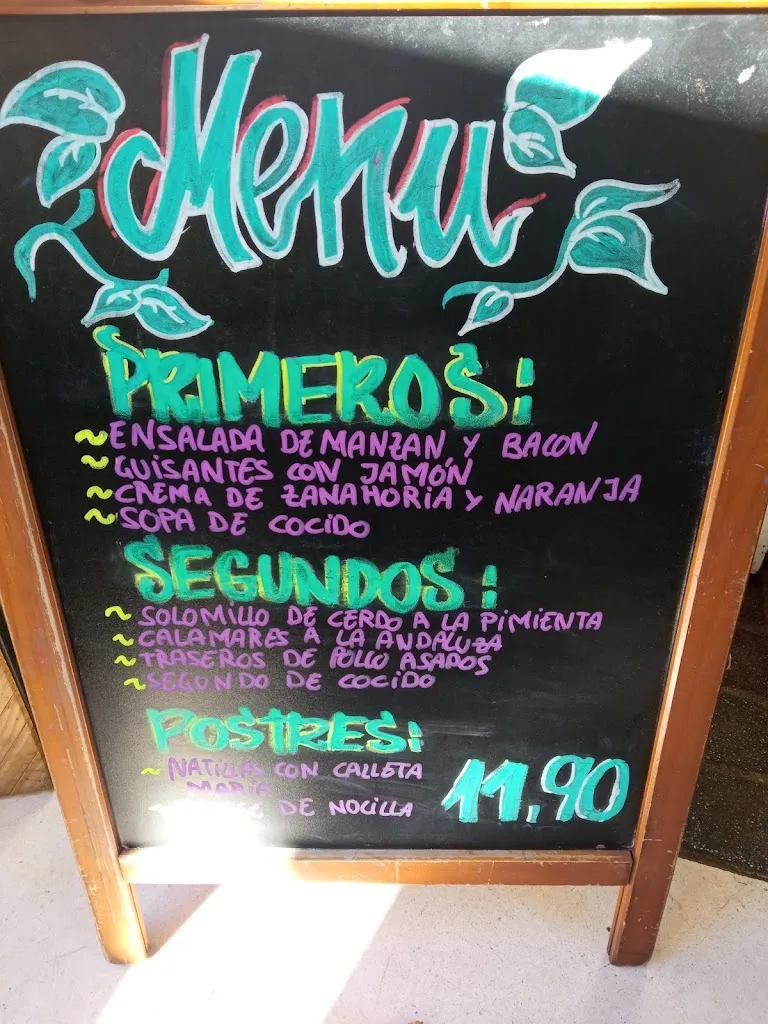 Menu
PRIMEROS:
~ENSALADA DE MANZAN Y BACON
~GUISANTES CON JAMÓN
~CREMA DE ZANAHORIA Y NARANJA
~SOPA DE COCIDO
SEGUNDOS:
~SOLOMILLO DE CERDO A LA PIMIENTA
~CALAMARES A LA ANDALUZA
~TRASEROS DE POLLO ASADOS
~SEGUNDO DE COCIDO
POSTRES:
~NATILLAS CON GALLETA
MARIA
DE NOCILLA
11,90